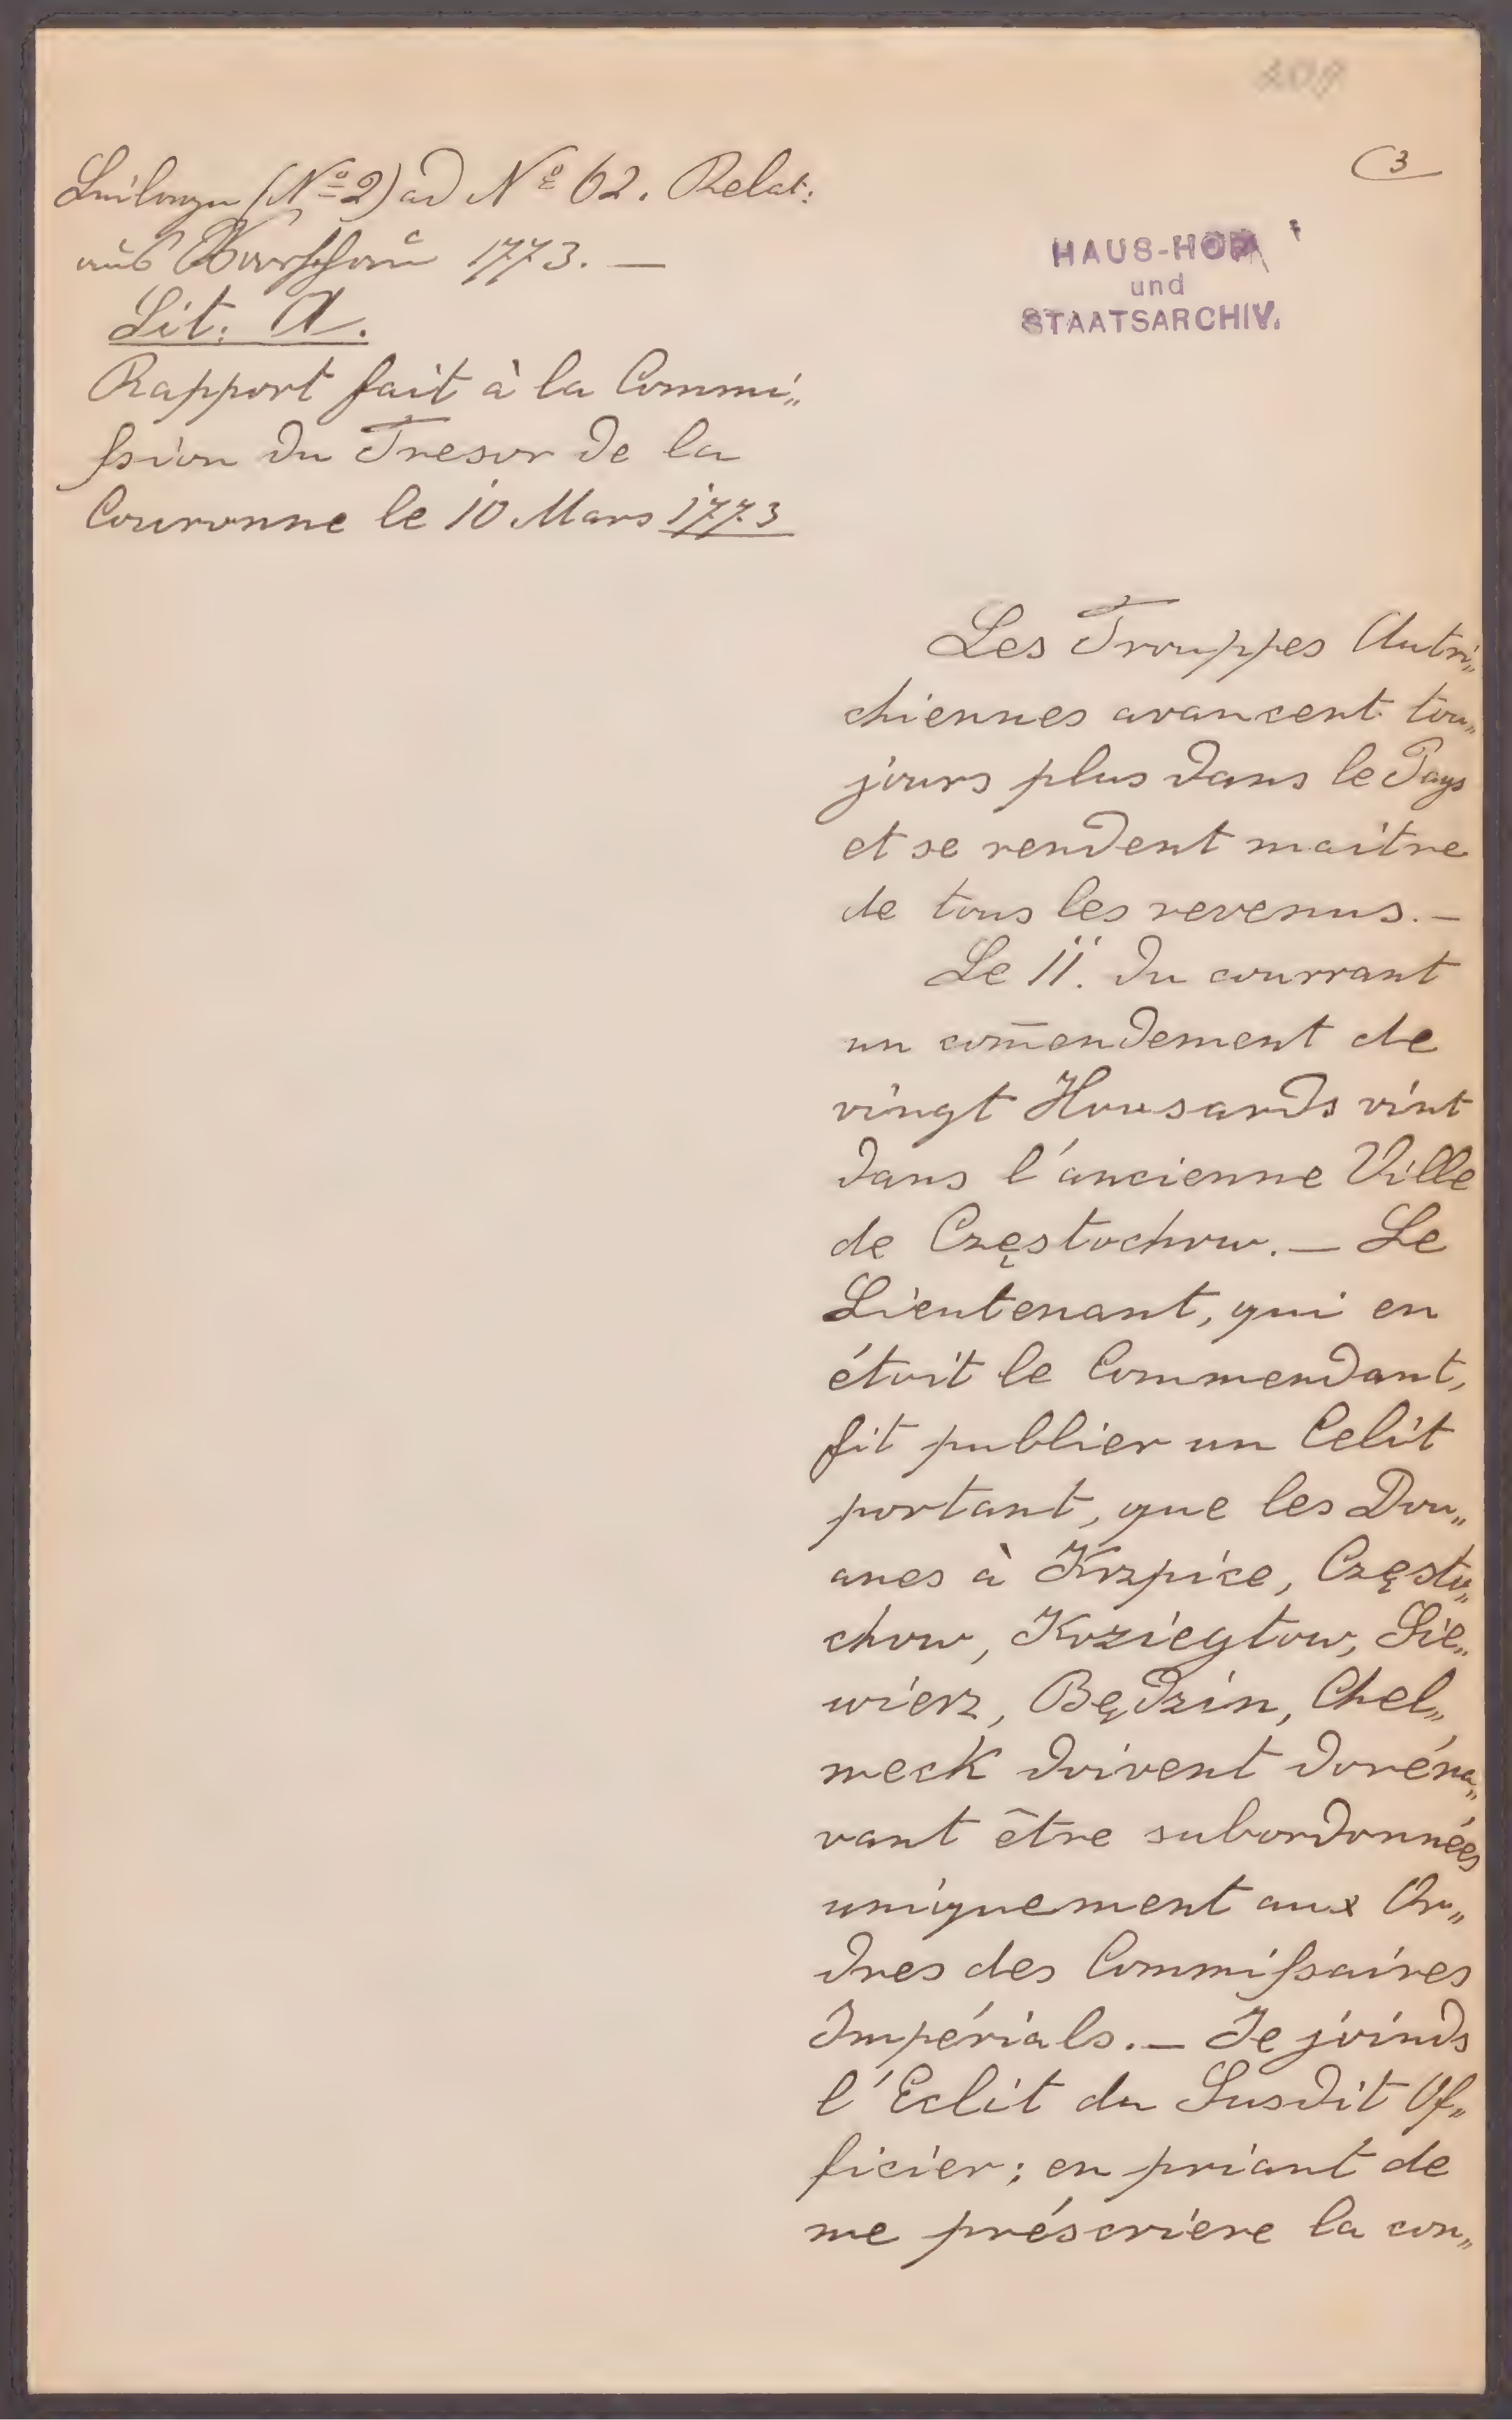 209
3
Beilagen (Nº 2) ad Nº 62. Relat:
aus Warschau 1773. —
HAUS-HOF
und
STAATSARCHIV.
Lit: A.
Rapport fait à la Commi„
ssion du Tresor de la
Couronne le 10 Mars 1773
Les Trouppes Autri„
chiennes avancent tou„
jours plus dans le Pays
et se rendent maitre
de tous les revenus. —
Le 11. du courrant
un com̄endement de
vingt Housards vint
dans l'ancienne Ville
de Częstochow. — Le
Lieutenant, qui en
étoit le Commendant,
fit publier un Celit
portant, que les Dou„
anes à Krzpice, Często„
chow, Koziegłow, Sie„
wierz, Będzin, Chel„
meck doivent doréna„
vant être subordonnées
uniquement aux Or„
dres des Commissaires
Impérials. — Je joinds
l'Eclit du Susdit Of„
ficier; en priant de
me préscriere la con„